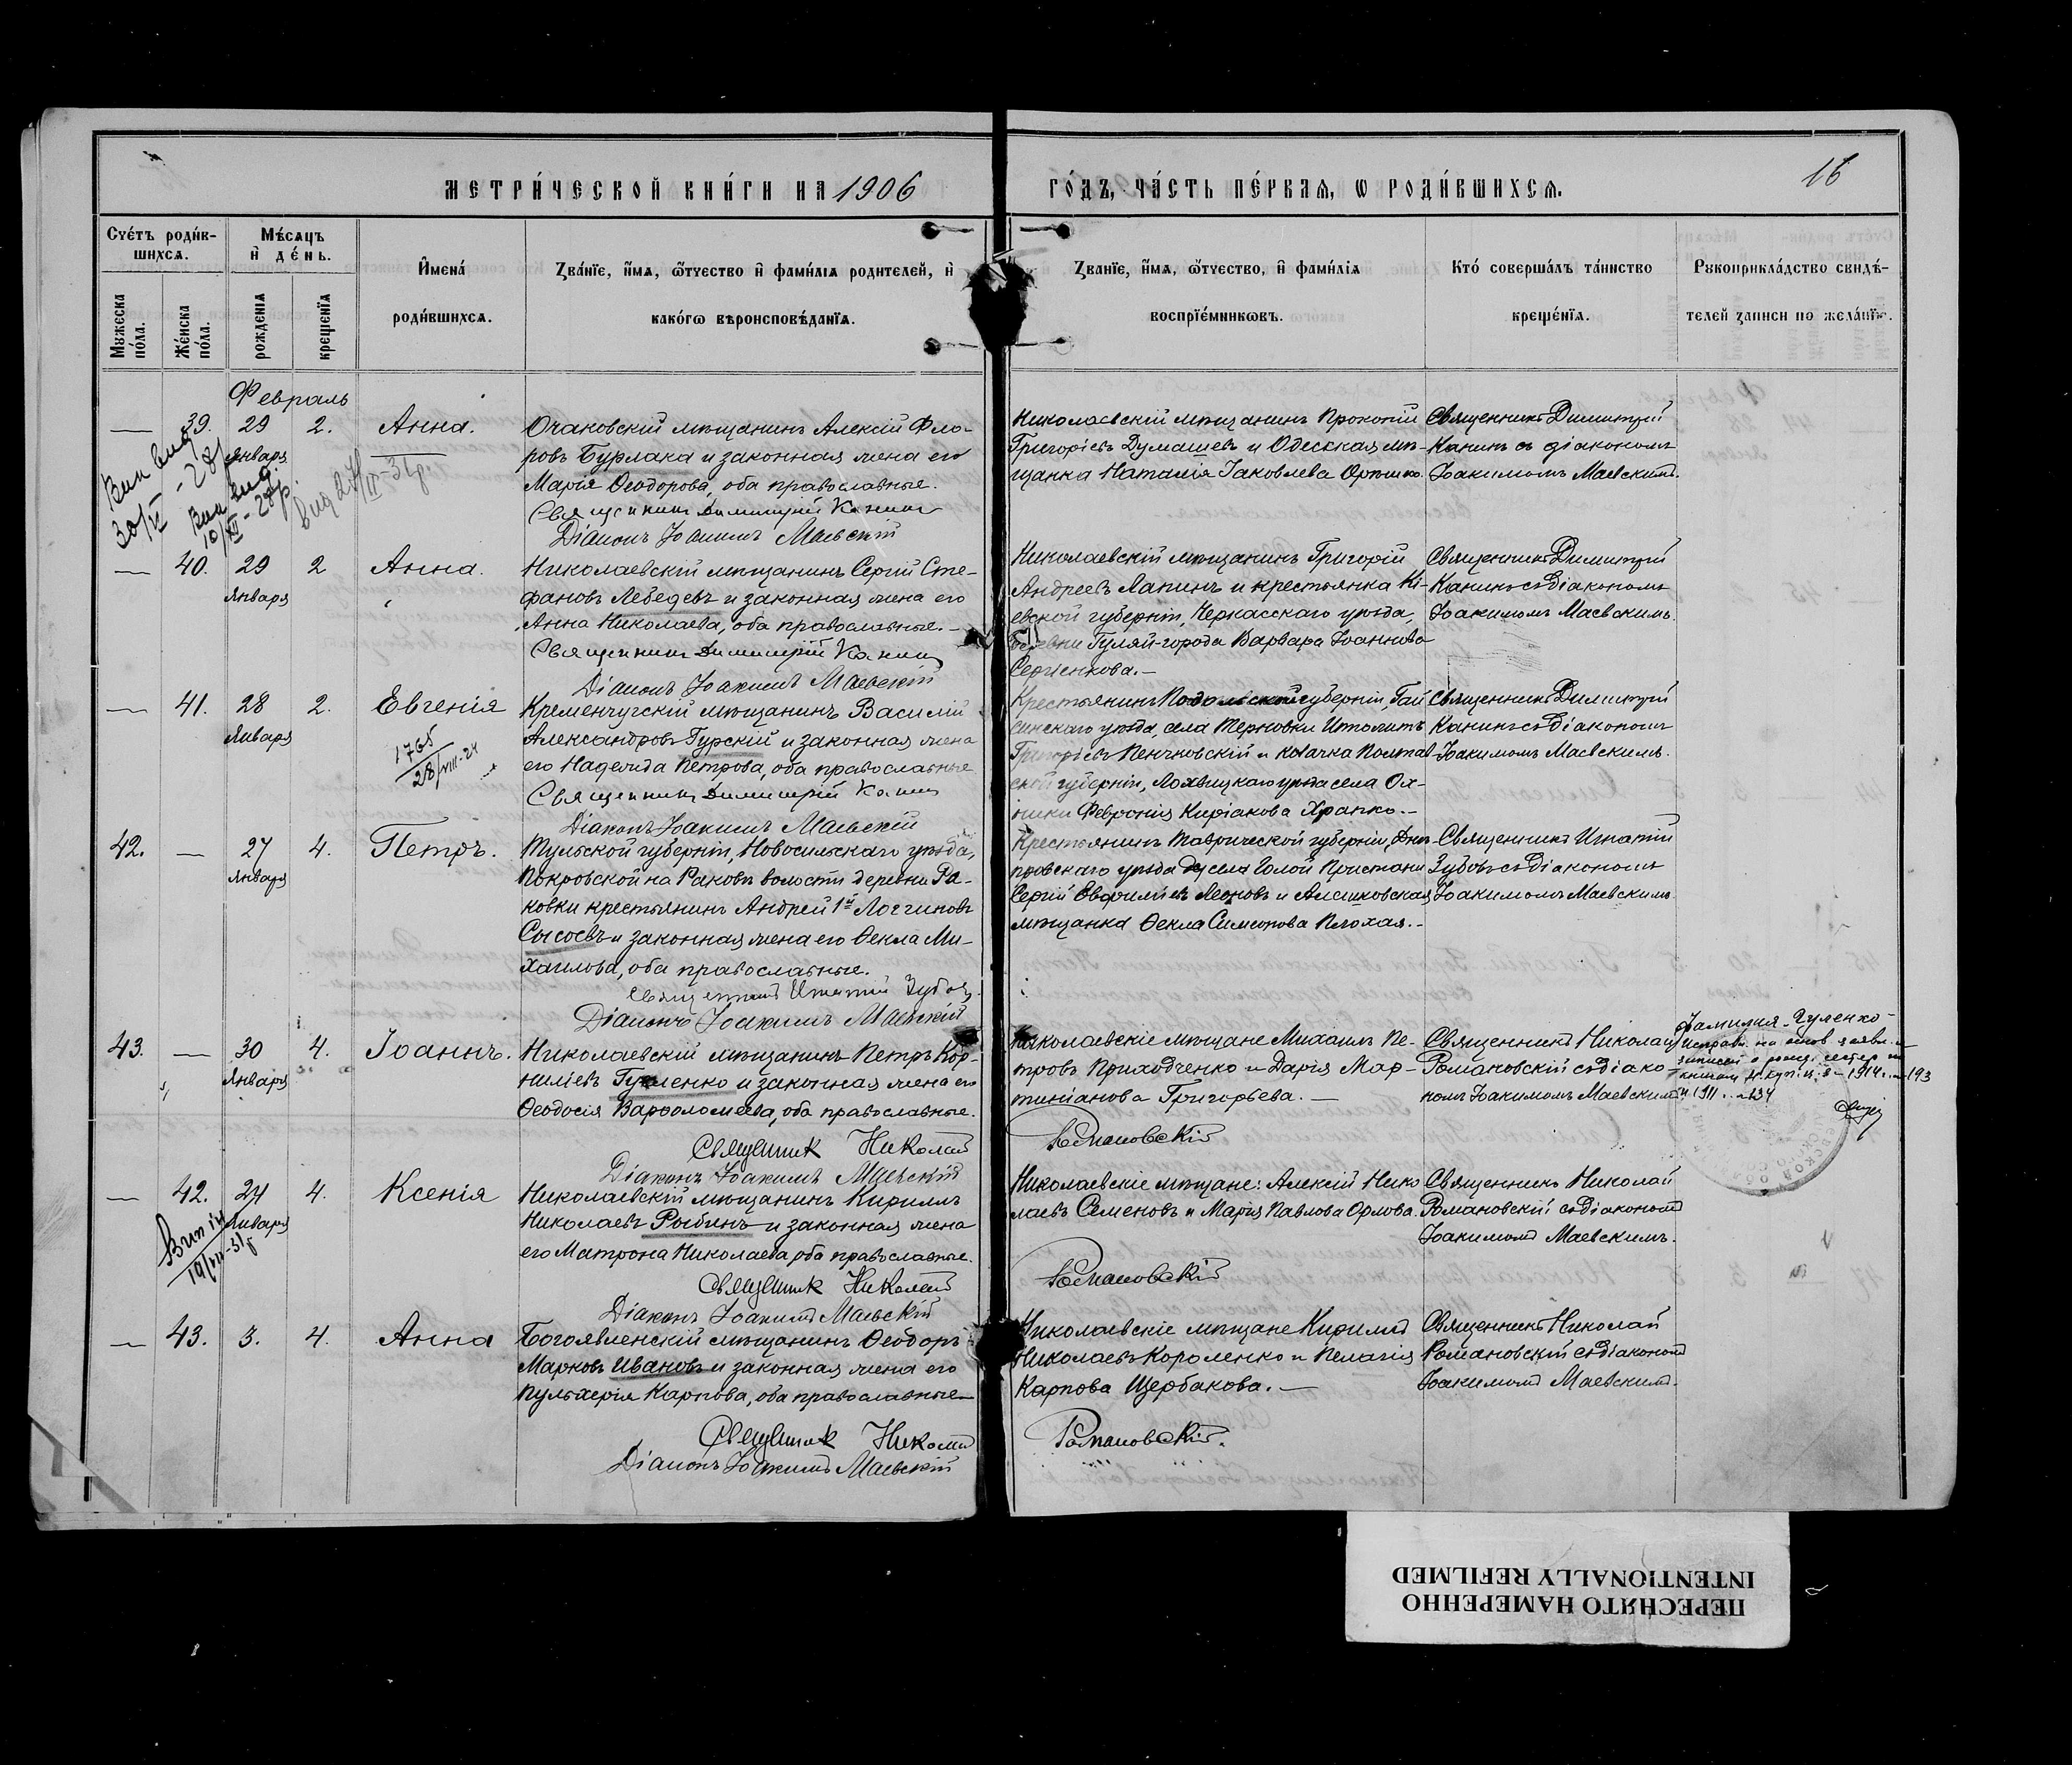 МЕТРИ́ЧЕСКОЙ КНИ́ГИ НА 1906
ГО́ДЪ, ЧА́СТЬ ПЕ́РВАѦ, Ѡ РОДИ́ВШИХСѦ.
16
Сче́тъ роди́в-
шихсѧ.
Мꙋжеска по́ла.
Же́нска по́ла.
Мѣ́сѧцъ
и҆ де́нь.
рожденїѧ
крещенїѧ
И҆мена́
роди́вшихсѧ.
Зва́нїе, и҆́мѧ, ѻ҆́тчество и҆ фами́лїѧ родителей, и҆
како́гѡ вѣроисповѣ́данїѧ.
Зва́нїе, и҆́мѧ, ѻ҆́тчество, и҆ фами́лїѧ
воспрїе́мникѡвъ.
Кто́ соверша́лъ та́инство
креще́нїѧ.
Рꙋкоприкла́дство свидѣ́-
телей записи по жела́нїю.
Февраль
— 39. 29 2. Анна.
Января
Очаковскій мѣщанинъ Алексій Фло-
ровъ Бурлака и законная жена его
Марія Ѳеодорова, оба православные.
Священникъ Димитрій Канинъ
Діаконъ Іоакимъ Маевскій
Николаевскій мѣщанинъ Прокопій
Григоріевъ Думашевъ и Одесская мѣ-
щанка Наталія Іаковлева
Священникъ Димитрій
Канинъ съ діакономъ
Іоакимомъ Маевскимъ.
— 40. 29 2 Анна.
Января
Николаевскій мѣщанинъ Сергій Сте-
фановъ Лебедевъ и законная жена его
Анна Николаева, оба православные.—
Священникъ Димитрій Канинъ
Діаконъ Іоакимъ Маевскій
Николаевскій мѣщанинъ Григорій
Андреевъ Лапинъ и крестьянка Кі-
евской губерніи, Черкасскаго уѣзда,
Гуляй-города Варвара Іоаннова
Сергіенкова.—
Священникъ Димитрій
Канинъ съ діакономъ
Іоакимомъ Маевскимъ
— 41. 28 2. Евгенія
Января
1765
28/VIII-24
Кременчугскій мѣщанинъ Василій
Александровъ Гурскій и законная жена
его Надежда Петрова, оба православные
Священникъ Димитрій Канинъ
Діаконъ Іоакимъ Маевскій
Крестьянинъ Подольской губерніи, Гай
синскаго уѣзда, села Терновки Ипполитъ
Григоріевъ Пенчковскій и казачка Полтав
ской губерніи, Лохвицкаго уѣзда села Ох-
иньки Февронія Киріакова Храпко.—
Священникъ Димитрій
Канинъ съ діакономъ
Іоакимомъ Маевскимъ.
42. — 27 4. Петръ.
Января
Тульской губерніи, Новосильскаго уѣзда,
Покровской на Раковѣ волости деревни Ра-
ковки крестьянинъ Андрей 1й Логгиновъ
Сысоевъ и законная жена его Ѳекла Ми-
хаилова, оба православные.
Священникъ Игнатій Зубовъ
Діаконъ Іоакимъ Маевскій
Крестьянинъ Таврической губерніи, Днѣ-
провскаго уѣзда села Голой Пристани
Сергій Евфиміевъ Леоновъ и Алешковская
мѣщанка Ѳекла Симеонова Плохая.—
Священникъ Игнатій
Зубовъ съ діакономъ
Іоакимомъ Маевскимъ
43. — 30 4. Іоаннъ.
Января
Николаевскій мѣщанинъ Петръ Кор-
ниліевъ Гуленко и законная жена его
Ѳеодосія Варѳоломеева, оба православные.
Священникъ Николай
Діаконъ Іоакимъ Маевскій
Николаевскіе мѣщане Михаилъ Пе-
тровъ Приходченко и Дарія Мар-
тиніанова Григорьева.—
Романовскій
Священникъ Николай
Романовскій съ діако-
номъ Іоакимомъ Маевскимъ
Фамилия - Гуленко -
исправл. на основ. заявл. и
— 42. 27 4. Ксенія
Января
Николаевскій мѣщанинъ Кириллъ
Николаевъ Рыбинъ и законная жена
его Матрона Николаева, оба православные.
Священникъ Николай
Діаконъ Іоакимъ Маевскій
Николаевскіе мѣщане: Алексій Нико
лаевъ Семеновъ и Марія Павлова Орлова.
Романовскій
Священникъ Николай
Романовскій съ діакономъ
Іоакимомъ Маевскимъ.
— 43. 3. 4. Анна
Богоявленскій мѣщанинъ Ѳеодоръ
Марковъ Ивановъ и законная жена его
Пульхерія Карпова, оба православные—
Священникъ Николай
Діаконъ Іоакимъ Маевскій
Николаевскіе мѣщане Кириллъ
Николаевъ Короленко и Пелагія
Карпова Щербакова.—
Романовскій.
Священникъ Николай
Романовскій съ діакономъ
Іоакимомъ Маевскимъ.
ПЕРЕСНЯТО НАМЕРЕННО
INTENTIONALLY REFILMED